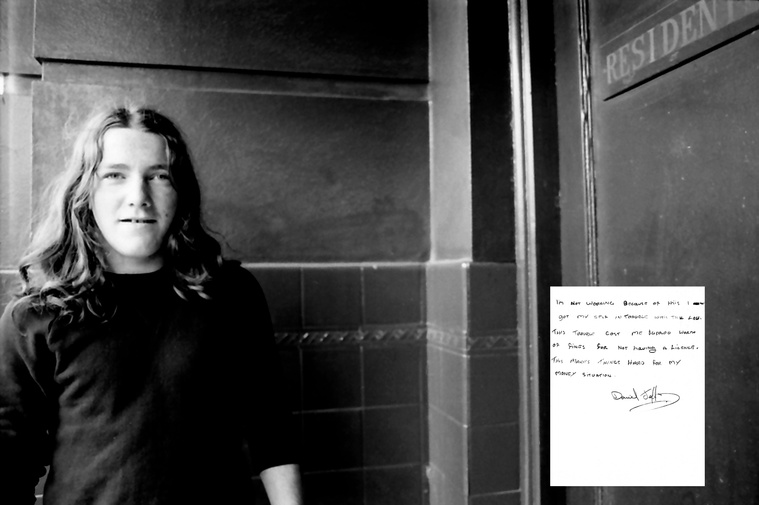 RESIDENT
I'M NOT WORKING BECAUSE OF THIS I
GOT MY SELF IN TROUBLE WITH THE LAW.
THIS TROUBLE COST ME WORTH
OF FINES FOR NOT HAVING A LICENCE.
THIS MAKES THINGS HARD FOR MY
MONEY SITUATION
Daniel